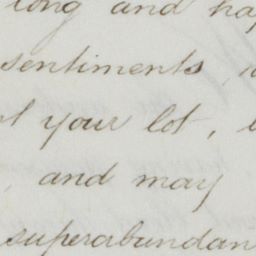 long and hap
sentiments,
t your lot,
and may
superabundan